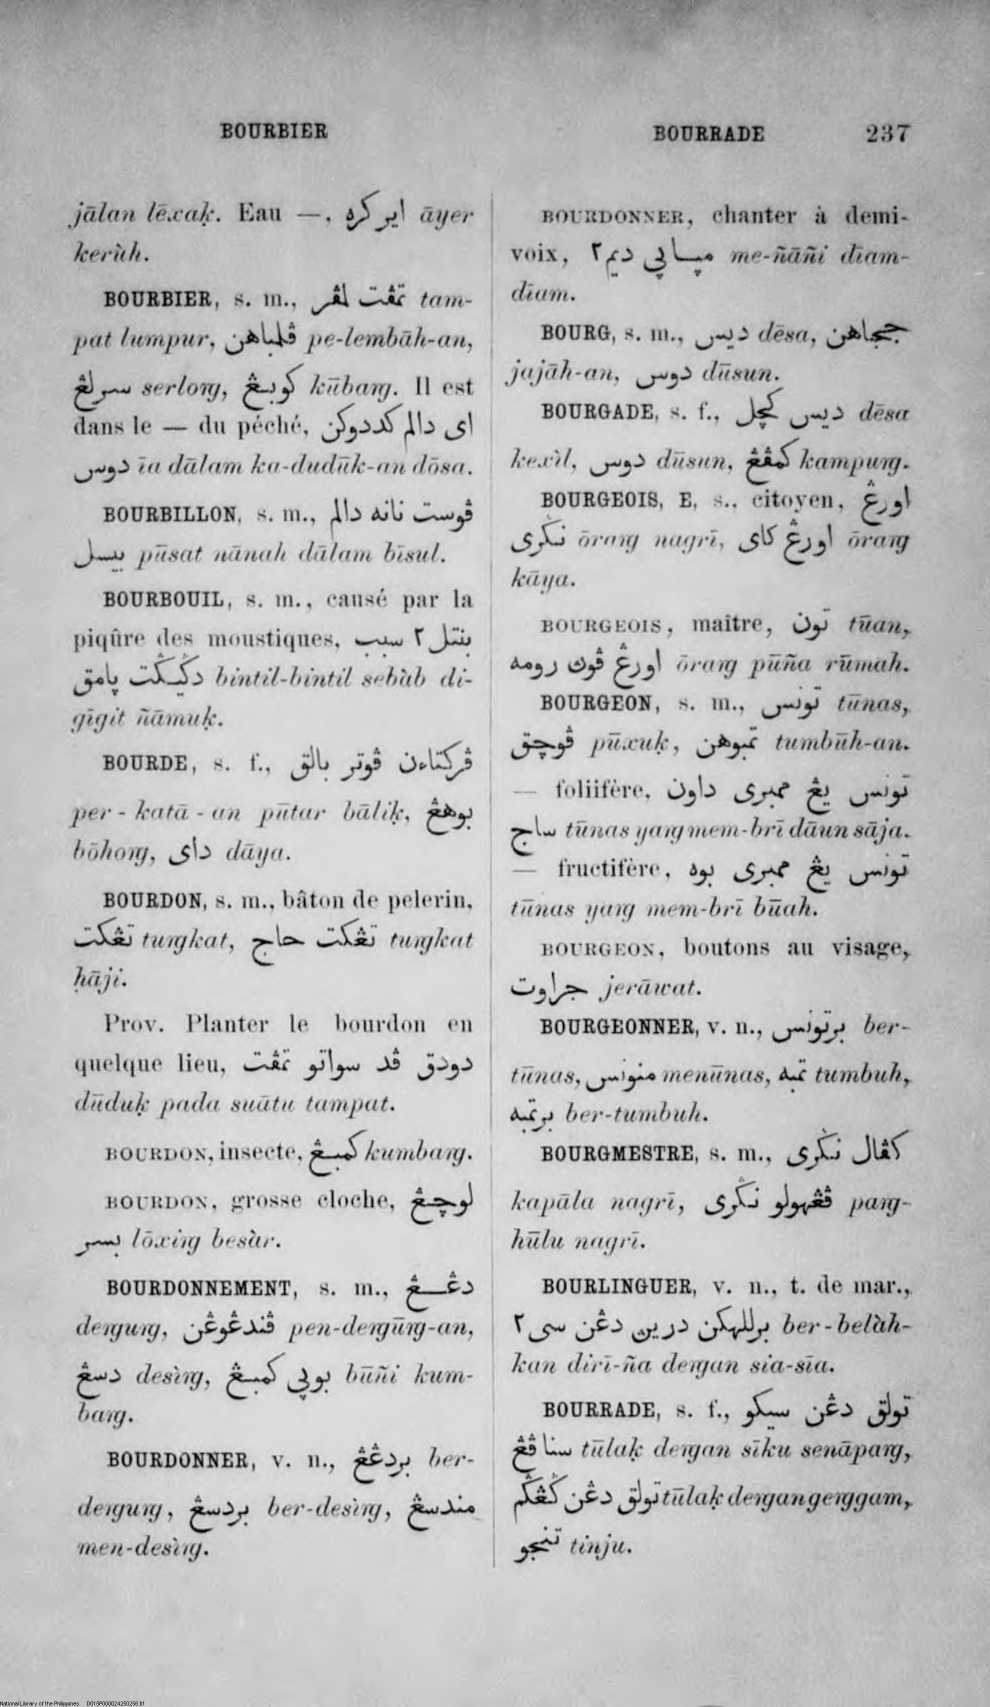 BOURBIER
BOURRADE 237
jālan lēxaḳ. Eau —, اير كره āyer
kerùh.
BOURBIER, s. m., تمڤت لمڤر tam-
pat lumpur, ڤلمباهن pe-lembāh-an,
سرلڠ serlorg, كوبڠ kūbarg. Il est
dans le — du péché, اى دالم كددوكن
دوس īa dālam ka-dudūk-an dōsa.
BOURBILLON, s. m., ڤوست نانه دالم
بيسل pūsat nānah dālam bīsul.
BOURBOUIL, s. m., causé par la
piqûre des moustiques, بنتل٢ سبب
دڬيڬت ڽامق bintil-bintil sebàb di-
gīgit ñāmuḳ.
BOURDE, s. f., ڤركتاءن ڤوتر بالق
per-katā-an pūtar bāliḳ, بوهڠ
bōhorg, داى dāya.
BOURDON, s. m., bâton de pelerin,
تڠكت turgkat, تڠكت حاج turgkat
ḥāji.
Prov. Planter le bourdon en
quelque lieu, دودق ڤد سواتو تمڤت
dūduḳ pada suātu tampat.
BOURDON, insecte, كمبڠ kumbarg.
BOURDON, grosse cloche, لوچڠ
بسر lōxirg besàr.
BOURDONNEMENT, s. m., دڠڠ
dergurg, ڤندڠوڠن pen-dergūrg-an,
دسڠ desìrg, بوڽي كمبڠ būñi kum-
barg.
BOURDONNER, v. n., بردڠڠ ber-
dergurg, بردسڠ ber-desìrg, مندسڠ
men-desìrg.
BOURDONNER, chanter à demi-
voix, مڽاڽي ديم٢ me-ñāñi dīam-
dīam.
BOURG, s. m., ديس dēsa, ججاهن
jajāh-an, دوس dūsun.
BOURGADE, s. f., ديس كچل dēsa
kexìl, دوس dūsun, كمڤڠ kampurg.
BOURGEOIS, E, s., citoyen, اورڠ
نڬرى ōrarg nagrī, اورڠ كاى ōrarg
kāya.
BOURGEOIS, maître, تون tūan,
اورڠ ڤوڽ رومه ōrarg pūña rūmah.
BOURGEON, s. m., تونس tūnas,
ڤوچق pūxuḳ, تمبوهن tumbūh-an.
— foliifère, تونس يڠ ممبرى داون
ساج tūnas yarg mem-brī dāun sāja.
— fructifère, تونس يڠ ممبرى بوه
tūnas yarg mem-brī būah.
BOURGEON, boutons au visage,
جراوت jerāwat.
BOURGEONNER, v. n., برتونس ber-
tūnas, منونس menūnas, تمبه tumbuh,
برتمبه ber-tumbuh.
BOURGMESTRE, s. m., كڤال نڬرى
kapāla nagrī, ڤڠهولو نڬرى parg-
hūlu nagrī.
BOURLINGUER, v. n., t. de mar.,
بربلهكن درين دڠن سى٢ ber-belàh-
kan dirī-ña dergan sia-sīa.
BOURRADE, s. f., تولق دڠن سيكو
سناڤڠ tūlaḳ dergan sīku senāparg,
تولق دڠن ڬڠڬم tūlaḳ dergan gerggam,
تنجو tinju.
National Library of the Philippines